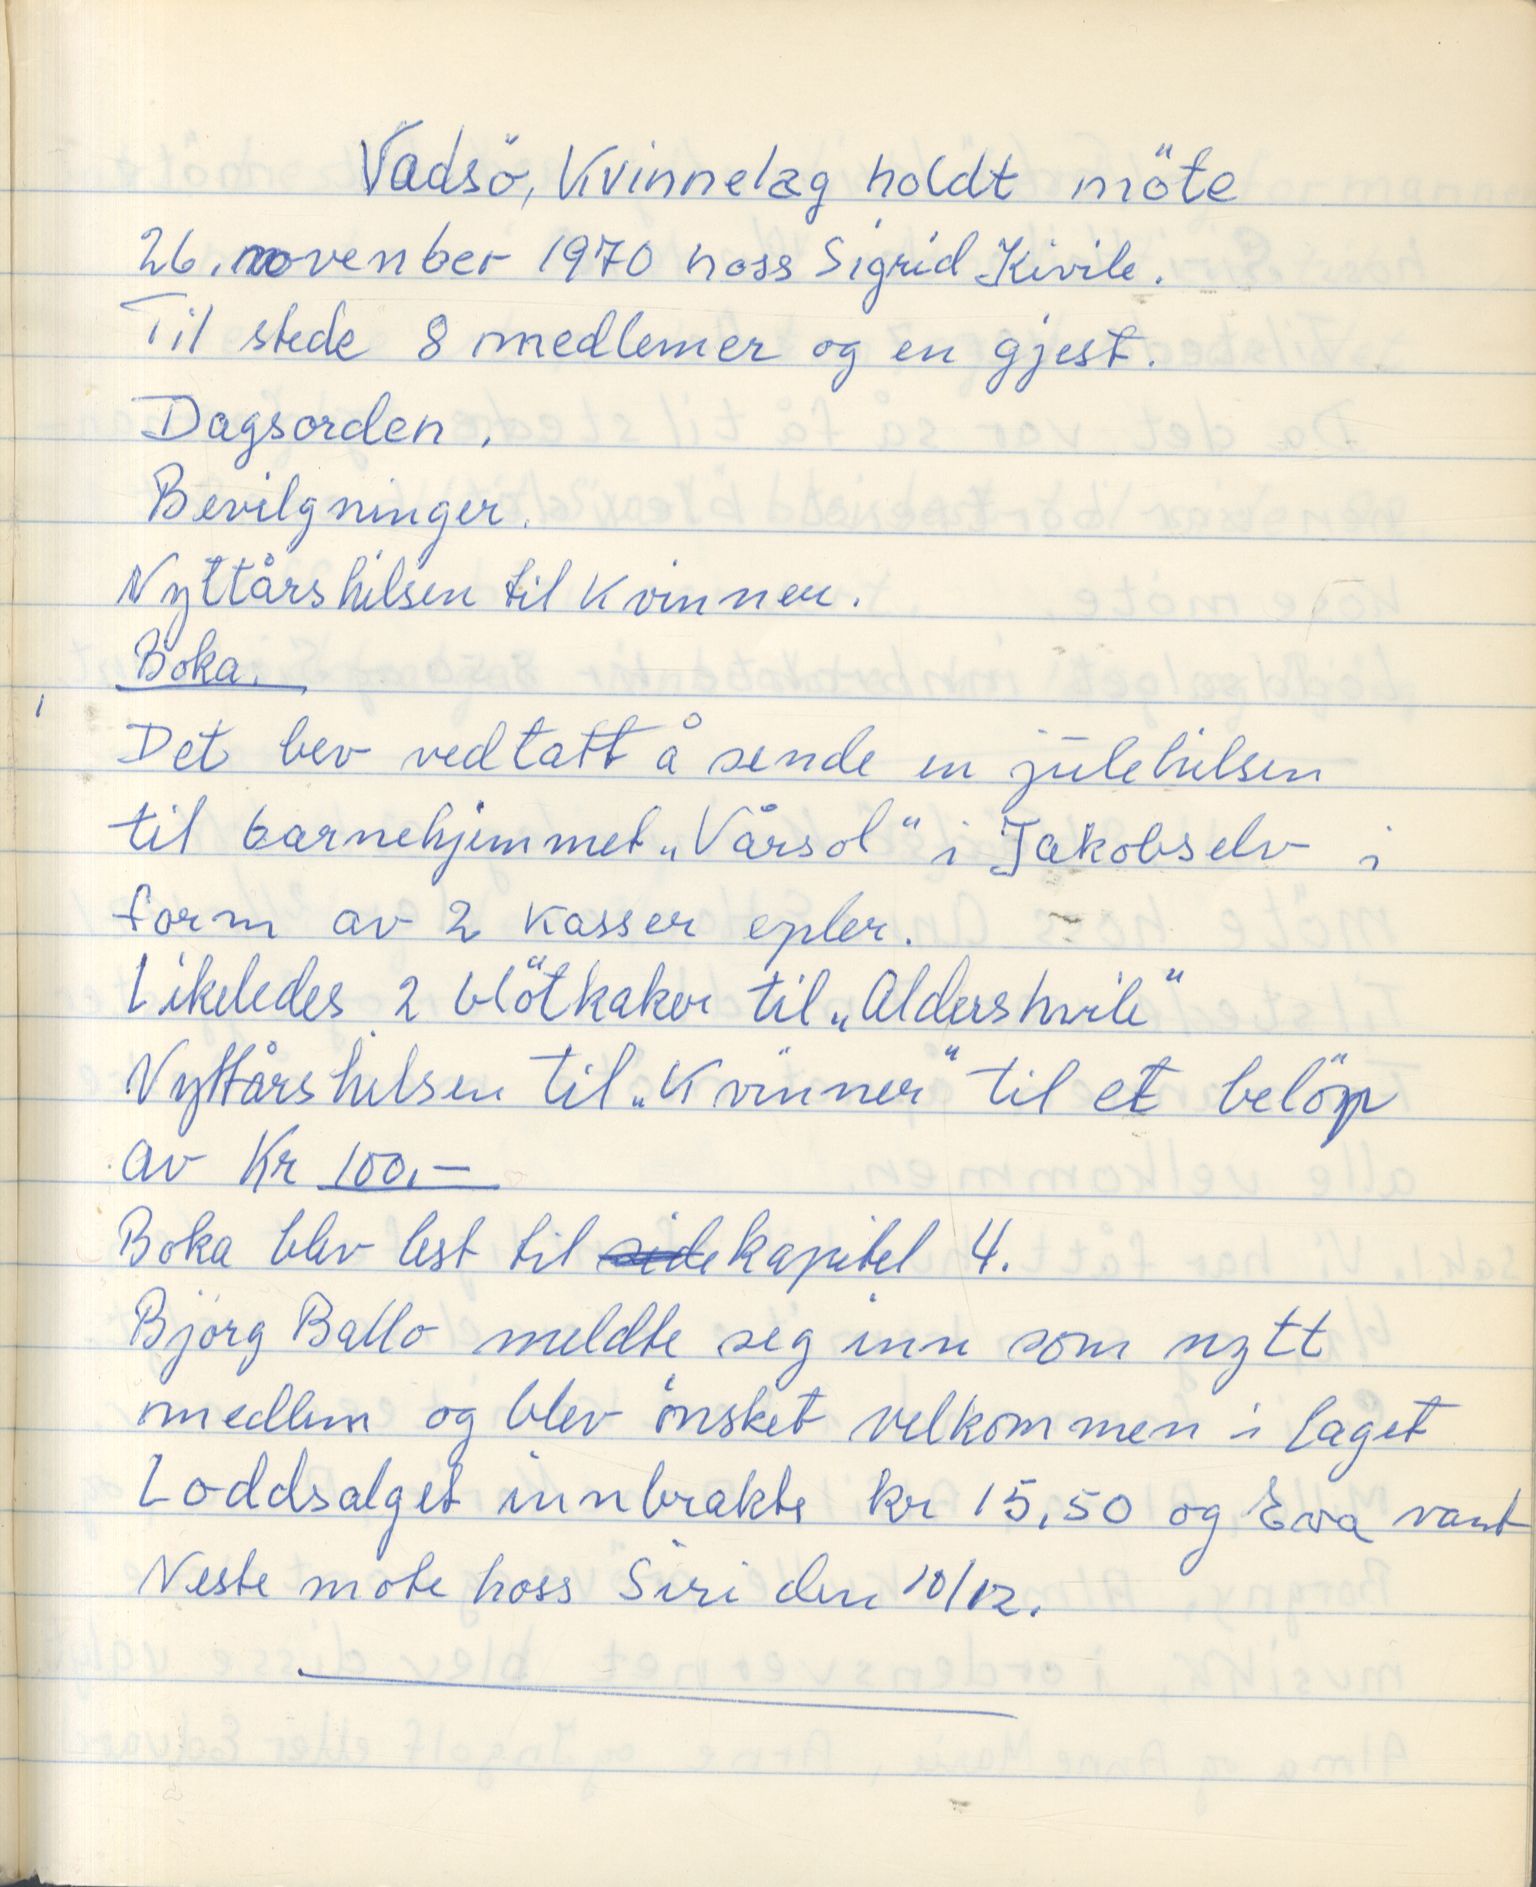 Vadsö, Kvinnelag holdt möte
26. november 1970 hoss Sigrid Kivile.
Til stede 8 medlemer og en gjest.
Dagsorden.
Bevilgninger.
Nyttårshilsen til Kvinner.
Boka.
Det bev vedtatt å sende en julehilsen
til barnehjemmet „Vårsol" i Jakobselv i
form av 2 kasser epler.
Likeledes 2 blötkaker til „Aldershvile"
Nyttårshilsen til „Kvinner" til et belöp
av Kr 100.-
Boka blev lest til side kapitel 4.
Bjórg Ballo meldte seg inn som nytt
medlem og blev ónsket velkommen i laget
Loddsalget innbrakte kr 15,50 og Eva vant
Neste mote hoss Siri den 10/12.